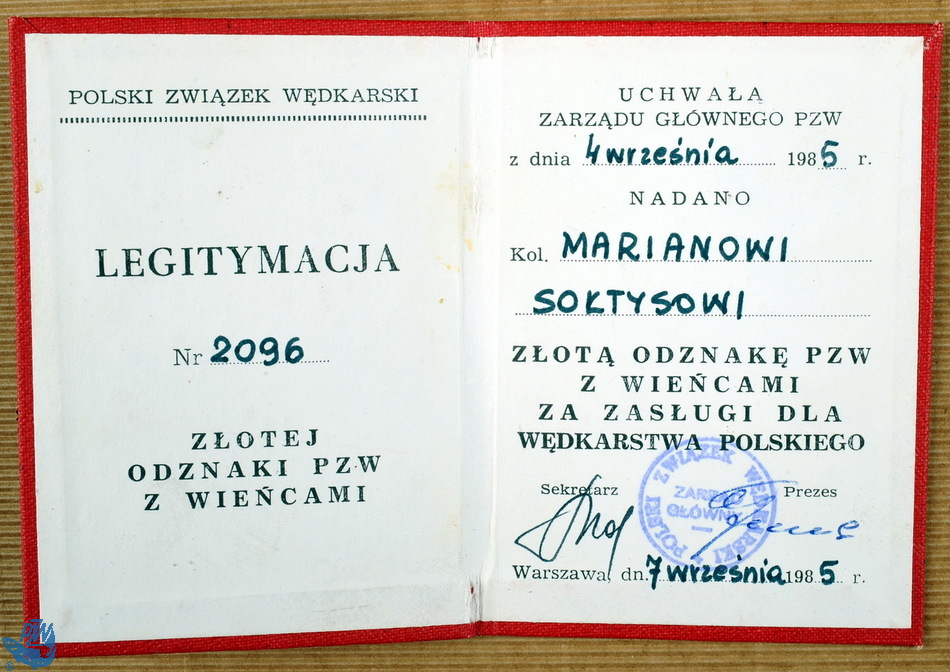 POLSKI ZWIĄZEK WĘDKARSKI
LEGITYMACJA
Nr 2096
ZŁOTEJ
ODZNAKI PZW
Z WIEŃCAMI
UCHWAŁĄ
ZARZĄDU GŁÓWNEGO PZW
z dnia 4 września 1985 r.
NADANO
Kol. MARIANOWI
SOŁTYSOWI
ZŁOTĄ ODZNAKĘ PZW
Z WIEŃCAMI
ZA ZASŁUGI DLA
WĘDKARSTWA POLSKIEGO
Sekretarz Prezes
POLSKI ZWIĄZEK WĘDKARSKI
ZARZĄD
GŁÓWNY
Warszawa, dn. 7 września 1985 r.